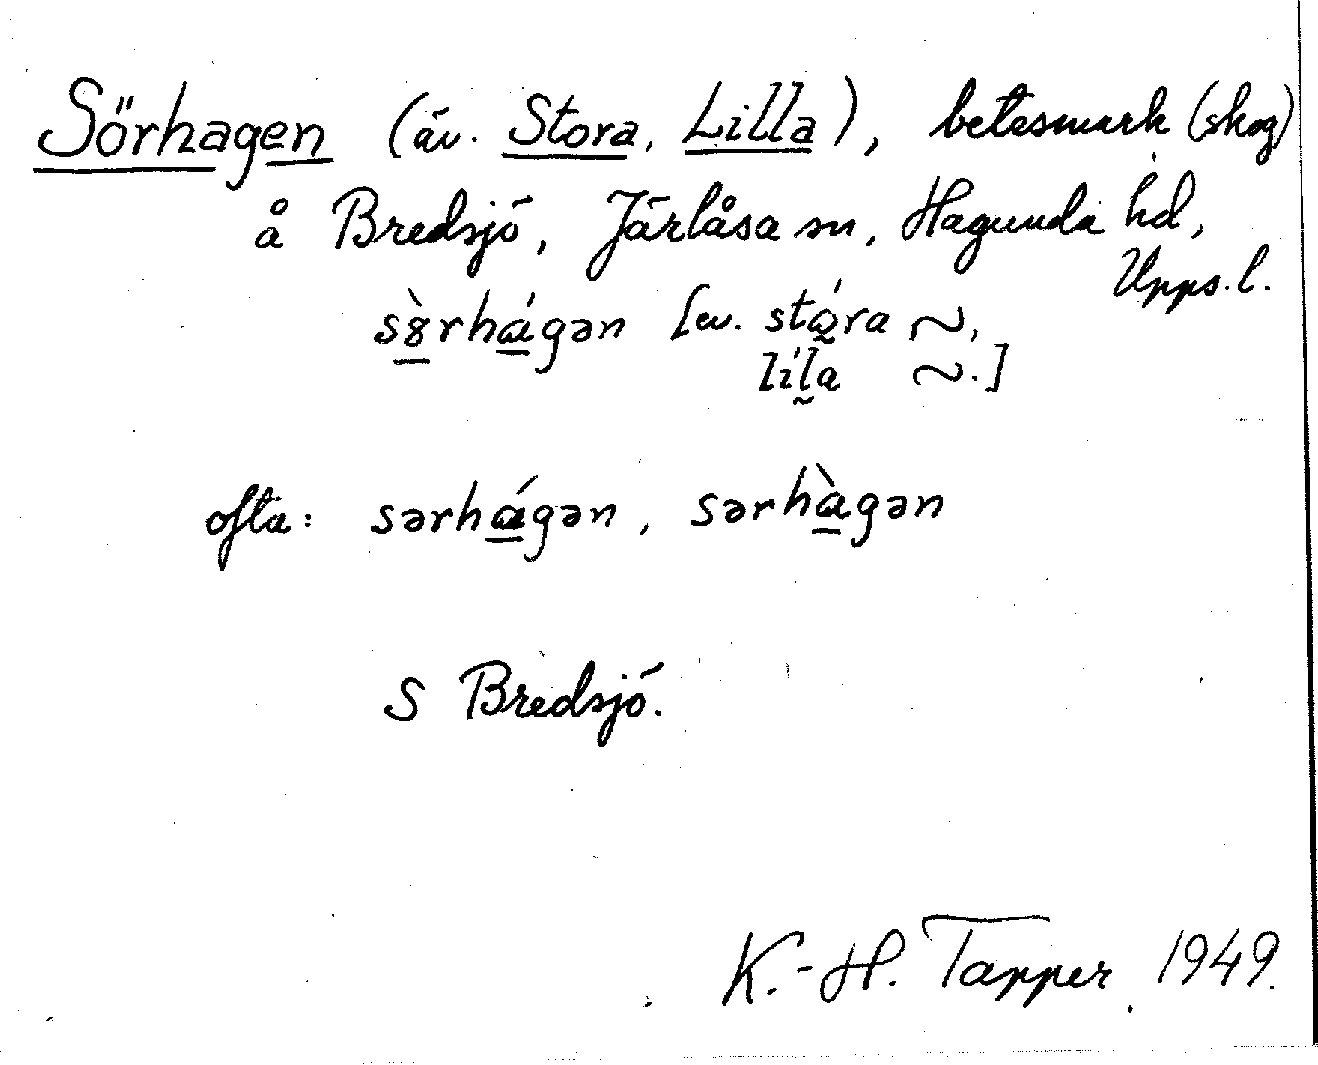 Sörhagen (äv. Stora, Lilla), betesmark (skog)
å Bredsjö, Järlåsa sn, Hagunda hd,
Upps. l.
sȣ̀rhágən [ev. stó̰ra ~,
líl̰a ~.]
ofta: sərhágən, sərhàgən
S Bredsjö.
K.-H. Tapper 1949.